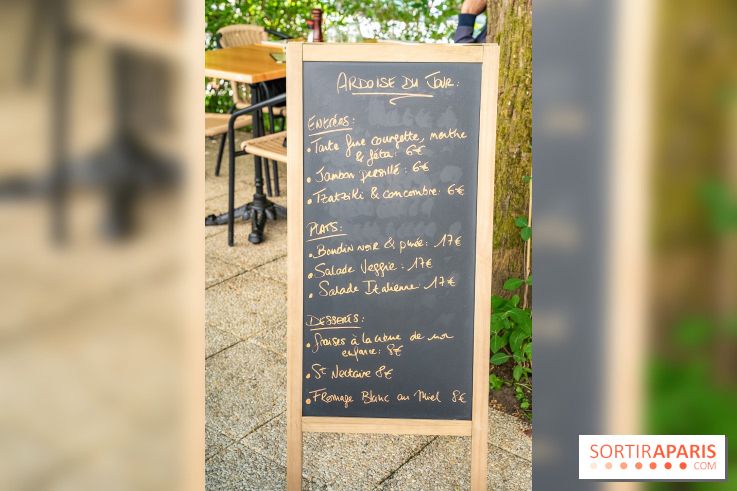 ARDOISE DU JOUR :
ENTRÉES :
• Tarte fine courgette, menthe
& féta : 6€
• Jambon persillé : 6€
• Tzatziki & concombre : 6€
PLATS :
• Boudin noir & purée : 17€
• Salade Veggie : 17€
• Salade Italienne : 17€
DESSERTS :
• fraises à la crème de mon
enfance : 8€
• St Nectaire 8€
• Fromage Blanc au Miel 8€
SORTIRAPARIS
.COM